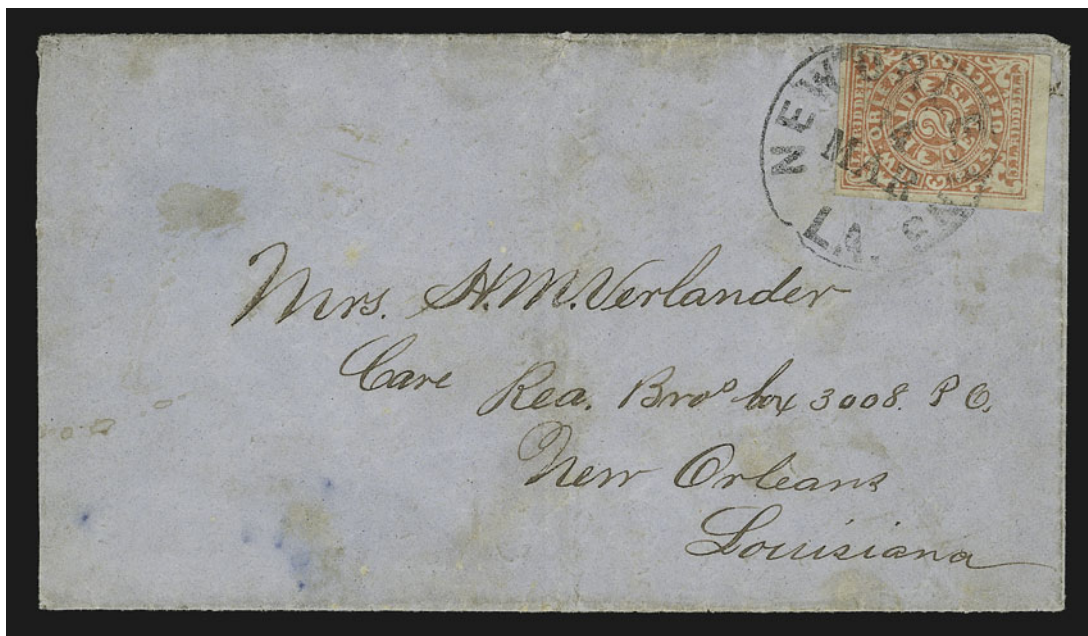 NEW ORLEANS
2
NEW
MAR
LA.
Mrs. H. M. Verlander
Care Rea. Bro^s box 3008. P O.
New Orleans
Louisiana